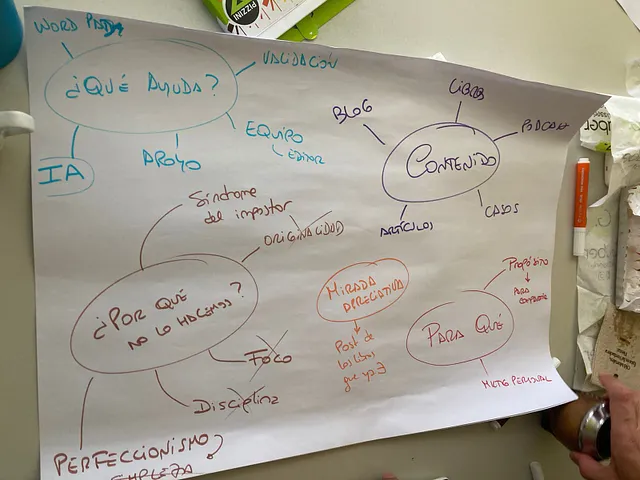 PIZZINI
WORD
¿QUÉ AYUDA?
VALIDACIÓN
EQUIPO
EDITOR
APOYO
IA
CONTENIDO
BLOG
LIBROS
PODCAST
CASOS
ARTÍCULOS
Síndrome
del impostor
ORIGINALIDAD
¿POR QUÉ
NO LO HACEMOS?
FOCO
Disciplina
PERFECCIONISMO
EMPIEZA
MIRADA
APRECIATIVA
Post de
los libros
que yo
PARA QUÉ
PROPÓSITO
PARA
MKTG PERSONAL